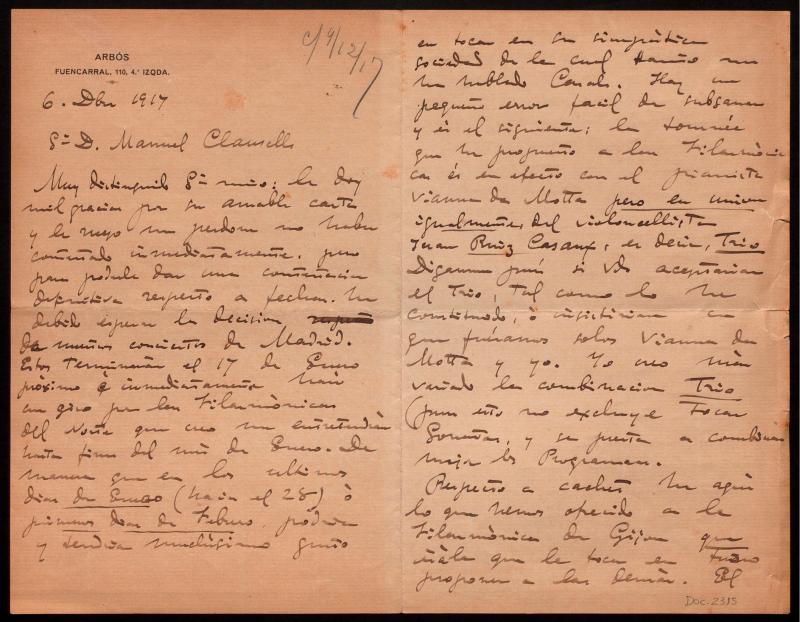 ARBÓS
FUENCARRAL, 110, 4.º IZQDA.
C/ 9/12/17
6. Dbre 1917
Sr D. Manuel Clausells
Muy distinguido Sr mio: le doy
mil gracias por su amable carta
y le ruego me perdone no haber
contestado inmediatamente, pero
para poderle dar una contestacion
definitiva respecto a fechas, he
debido esperar la decision
de nuestros conciertos de Madrid.
Estos terminarán el 17 de Enero
próximo é inmediatamente haré
un giro por las Filarmónicas
del Norte que creo me entretendrá
hasta fines del mes de Enero. De
manera que en los ultimos
dias de Enero (hacia el 28) ó
primeros dias de Febrero, podria
y tendria muchisimo gusto
en tocar en su simpática
sociedad de la cual tanto me
ha hablado Casals. Hay un
pequeño error facil de subsanar
y es el siguiente: la tournée
que he propuesto a las Filarmónicas
es en efecto con el pianista
Vianna da Motta pero en union
igualmente, del violoncellista
Juan Ruiz Casaux, es decir, Trio
Digame pues si Vds aceptarian
el Trio, tal como lo he
constituido, ó insistirian en
que fuéramos solos Vianna da
Motta y yo. Yo creo más
variado la combinacion Trio
(pues esto no excluye tocar
Sonatas, y se presta a combinar
mejor los Programas.
Respecto a cachets he aqui
lo que hemos ofrecido a la
Filarmónica de Gijon que
es la que le toca en turno
proponer a las demás. El
Doc-2315